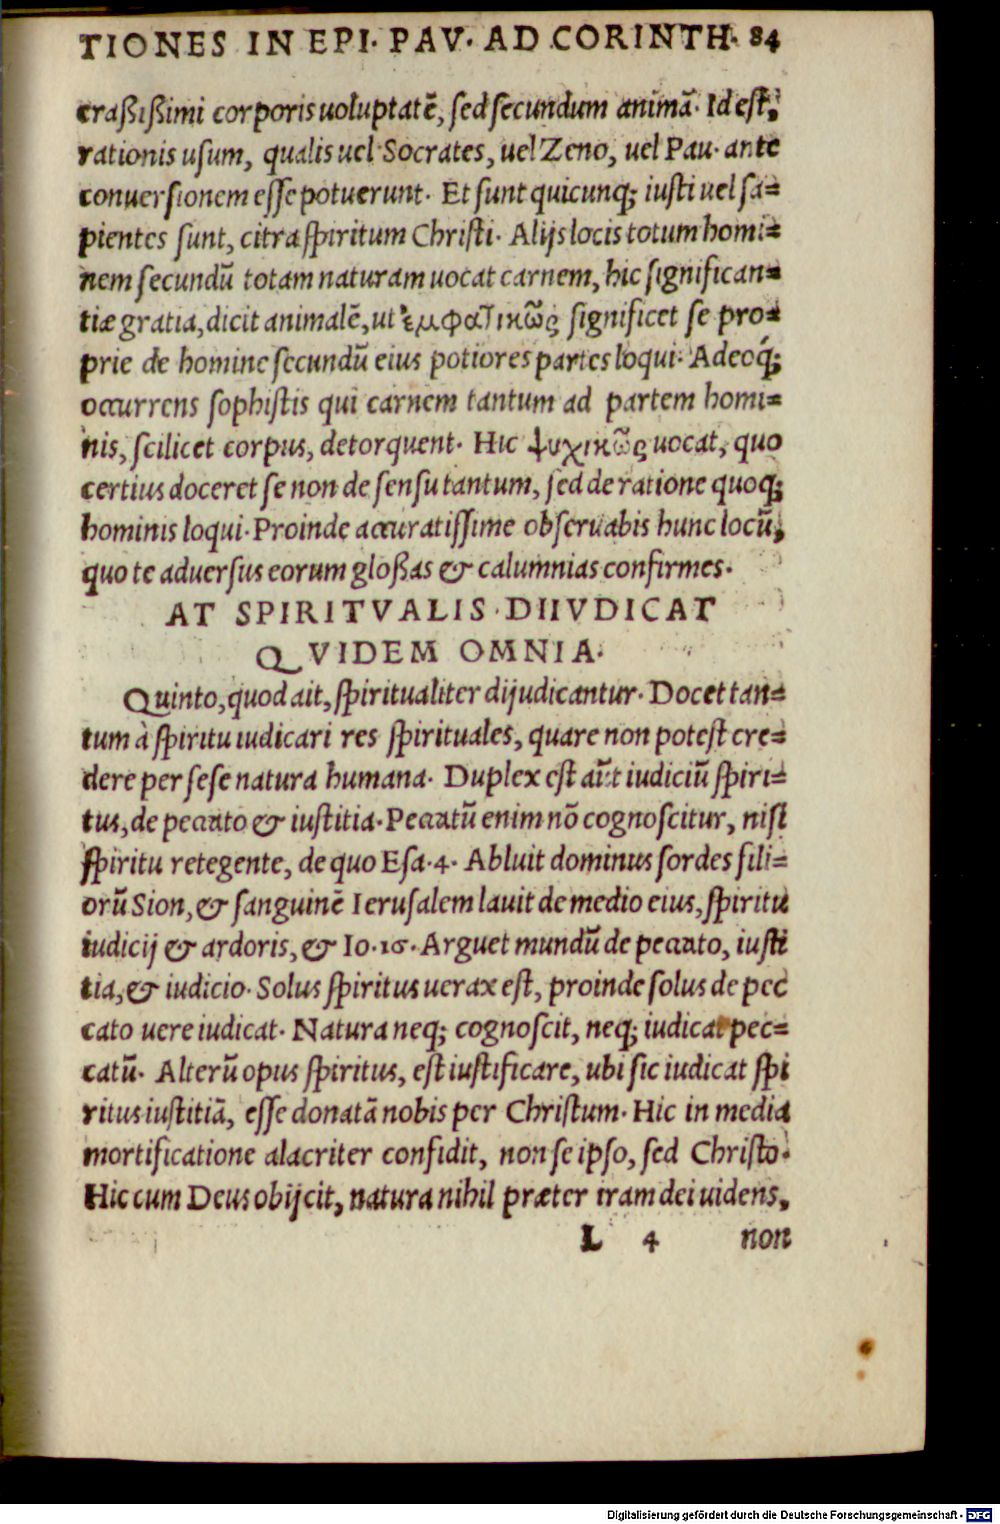 TIONES IN EPI. PAV. AD CORINTH. 84
craßißimi corporis uoluptatẽ, sed secundum animã. Id est,
rationis usum, qualis uel Socrates, uel Zeno, uel Pau. ante
conuersionem esse potuerunt. Et sunt quicunq; iusti uel sa=
pientes sunt, citra spiritum Christi. Alijs locis totum homi=
nem secundũ totam naturam uocat carnem, hic significan=
tiæ gratia, dicit animalẽ, ut ἐμφατικῶς significet se pro=
prie de homine secundũ eius potiores partes loqui. Adeoq́;
occurrens sophistis qui carnem tantum ad partem homi=
nis, scilicet corpus, detorquent. Hic ψυχικῶς uocat, quo
certius doceret se non de sensu tantum, sed de ratione quoq;
hominis loqui. Proinde accuratissime obseruabis hunc locũ,
quo te aduersus eorum gloßas & calumnias confirmes.
AT SPIRITVALIS DIIVDICAT
QVIDEM OMNIA.
Quinto, quod ait, spiritualiter dijudicantur. Docet tan=
tum à spiritu iudicari res spirituales, quare non potest cre=
dere per sese natura humana. Duplex est aũt iudiciũ spiri=
tus, de peccato & iustitia. Peccatũ enim nõ cognoscitur, nisi
spiritu retegente, de quo Esa. 4. Abluit dominus sordes fili=
orũ Sion, & sanguinẽ Ierusalem lauit de medio eius, spiritu
iudicij & ardoris, & Io. 16. Arguet mundũ de peccato, iusti
tia, & iudicio. Solus spiritus uerax est, proinde solus de pec
cato uere iudicat. Natura neq; cognoscit, neq; iudicat pec=
catũ. Alterũ opus spiritus, est iustificare, ubi sic iudicat spi
ritus iustitiã, esse donatã nobis per Christum. Hic in media
mortificatione alacriter confidit, non se ipso, sed Christo.
Hic cum Deus obijcit, natura nihil præter iram dei uidens,
L 4 non
Digitalisierung gefördert durch die Deutsche Forschungsgemeinschaft - DFG